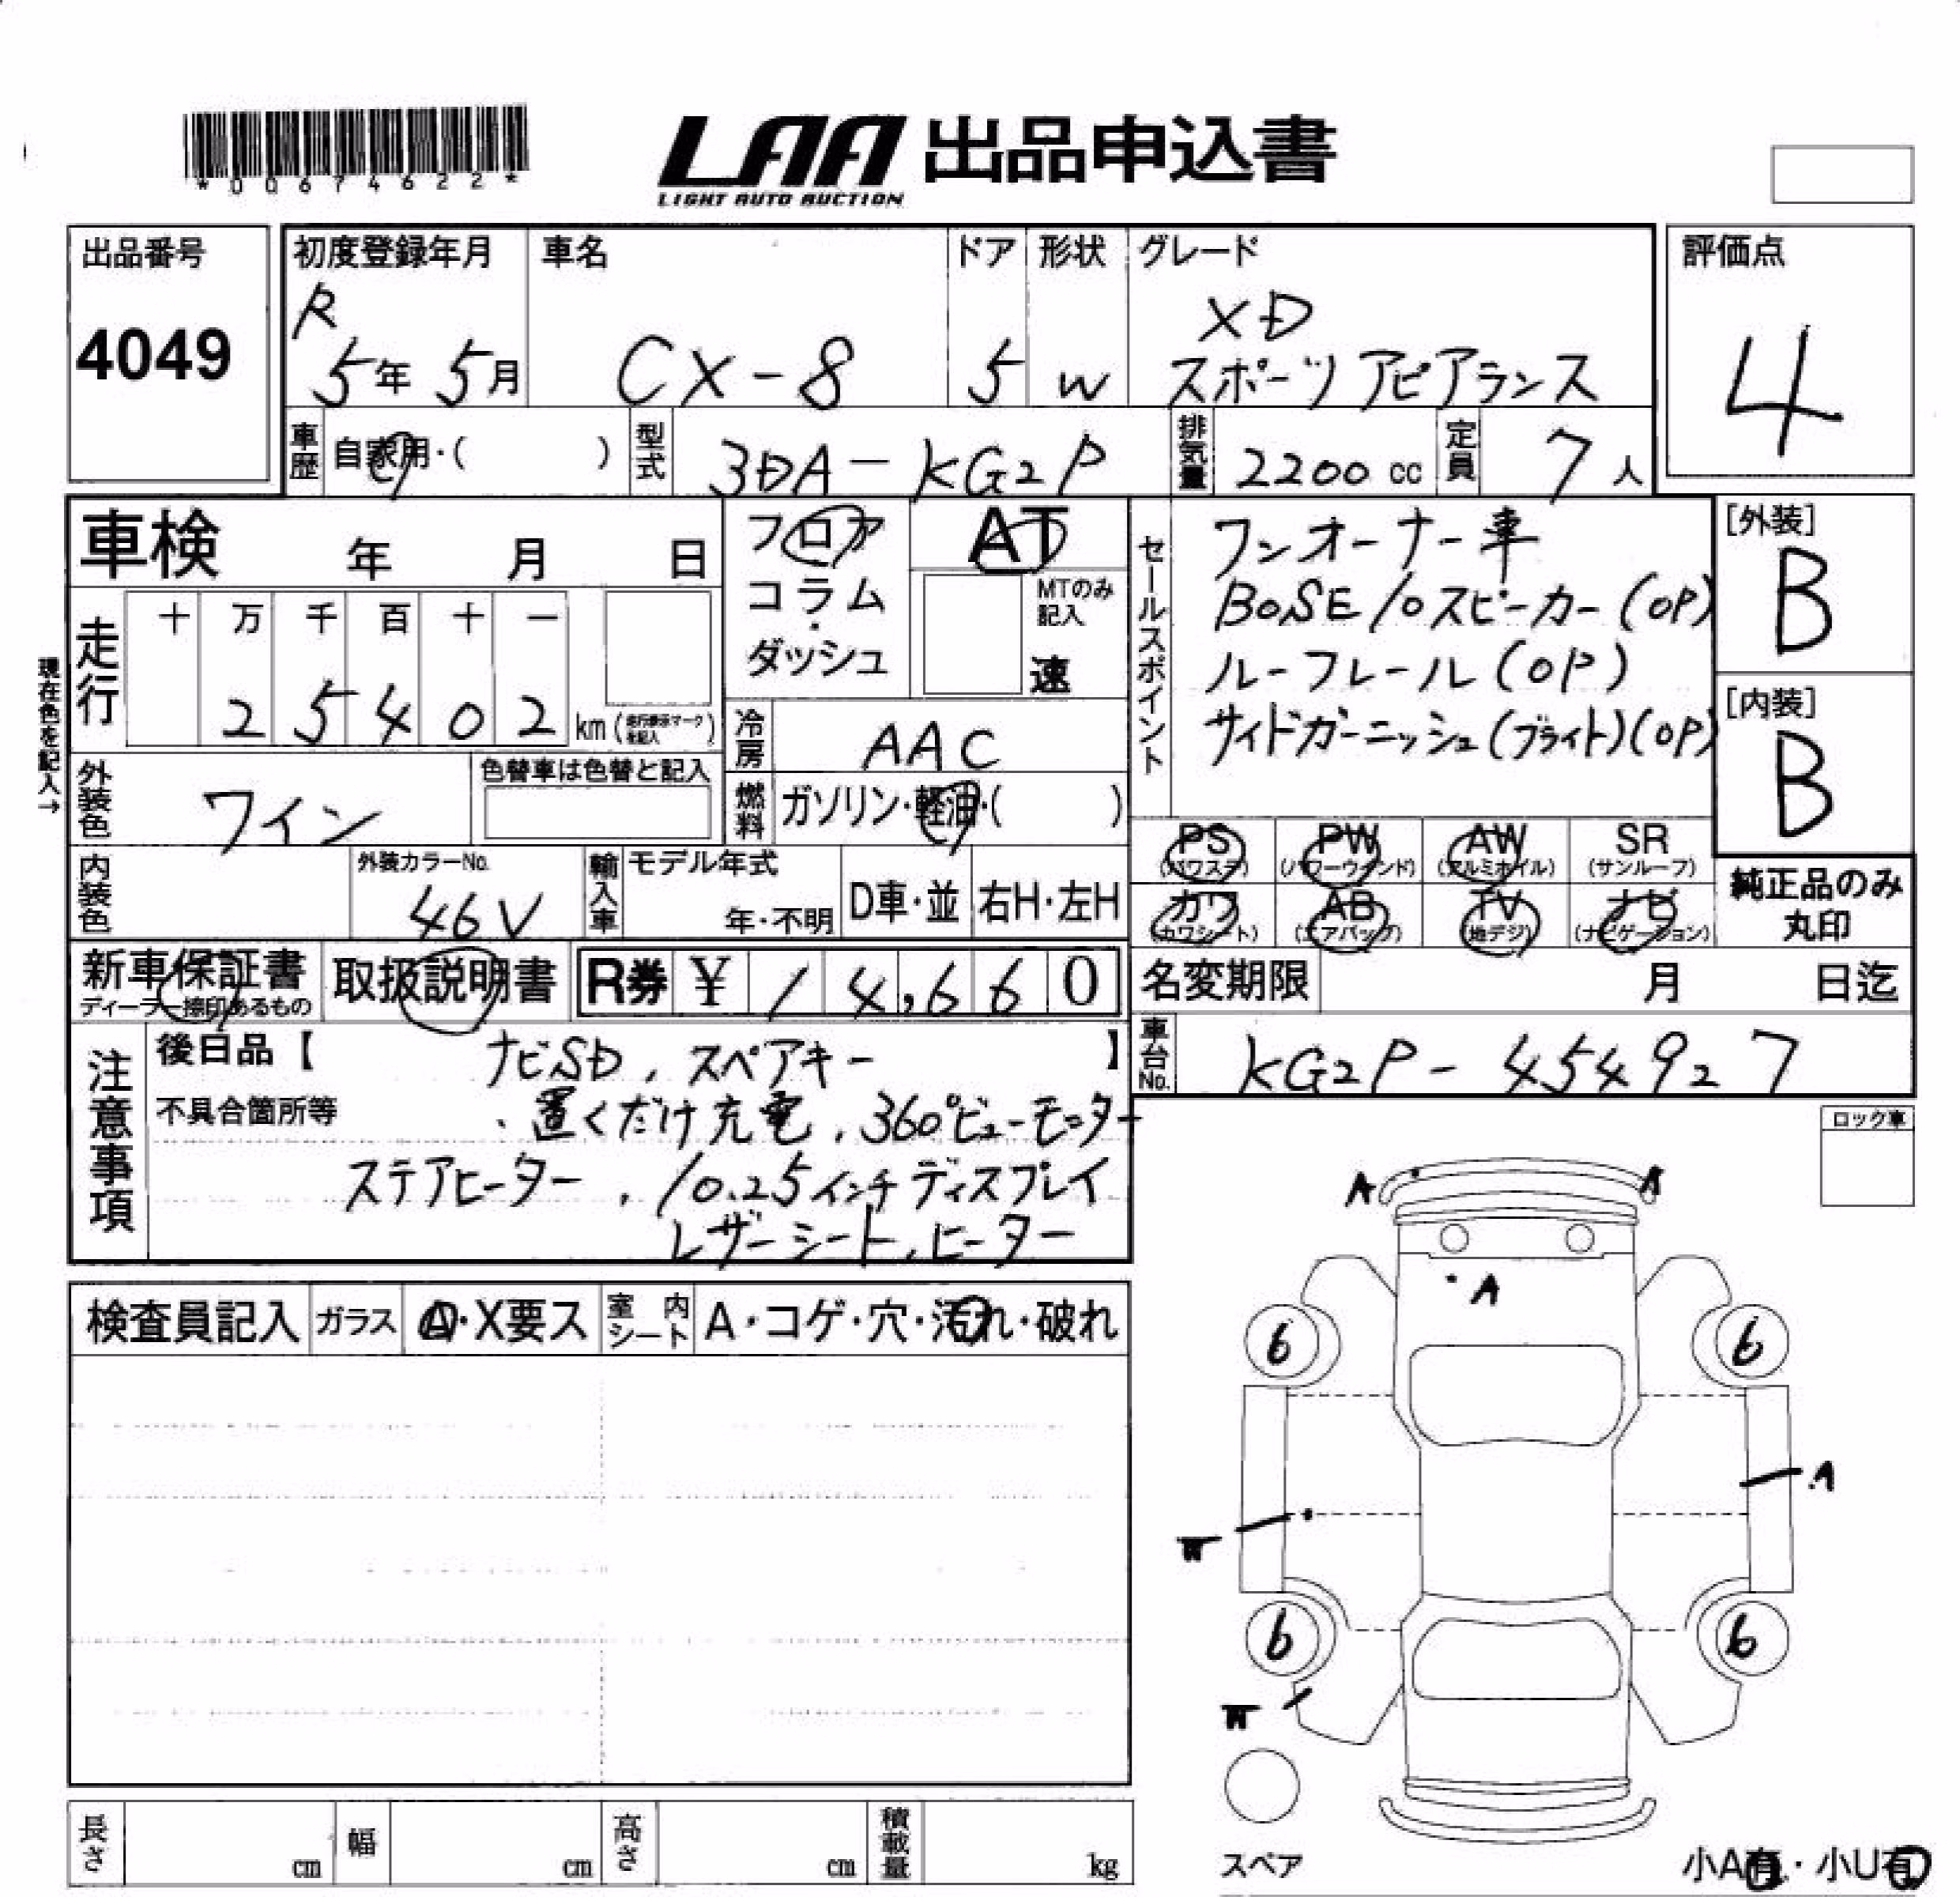 *00674622*
LAA 出品申込書
LIGHT AUTO AUCTION
出品番号
4049
初度登録年月
R
5年 5月
車名
CX-8
ドア
5
形状
W
グレード
XD
スポーツアピアランス
評価点
4
車歴
自家用・( )
型式
3DA-KG2P
排気量
2200 cc
定員
7人
車検 年 月 日
フロア
コラム
・
ダッシュ
AT
MTのみ
記入
速
セールスポイント
ワンオーナー車
BOSE 10スピーカー(OP)
ルーフレール(OP)
サイドガーニッシュ(ブライト)(OP)
[外装]
B
[内装]
B
現在色を記入→
走行
十 万 千 百 十 一
2 5 4 0 2 km
冷房
AAC
外装色
ワイン
色替車は色替と記入
燃料
ガソリン・軽油・( )
PS
(パワステ)
PW
(パワーウインド)
AW
(アルミホイル)
SR
(サンルーフ)
内装色
外装カラーNo.
46V
輸入車
モデル年式
年・不明
D車・並
右H・左H
カワ
(カワシート)
AB
(エアバッグ)
TV
(地デジ)
ナビ
(ナビゲーション)
純正品のみ
丸印
新車保証書
ディーラー捺印あるもの
取扱説明書
R券 ¥ 14,660
名変期限 月 日迄
注意事項
後日品【 ナビSD, スペアキー 】
車台No.
KG2P-454927
不具合箇所等
・置くだけ充電, 360°ビューモニター
ステアヒーター, 10.25インチディスプレイ
レザーシート, ヒーター
ロック車
A A
A
検査員記入
ガラス
A・X要ス
室内シート
A・コゲ・穴・汚れ・破れ
6 6
A
6 6
スペア
長さ cm
幅 cm
高さ cm
積載量 kg
小A有・小U有